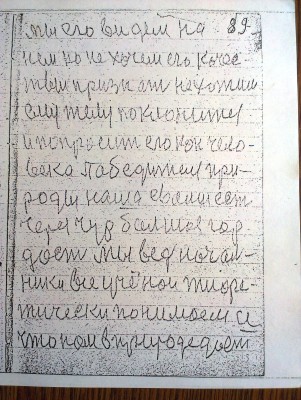 мы его видем на 89
нем но не хочем его качес-
твы признат не хотим
ему телу поклонится
и попросит его кон чело-
века Победителя при-
роды наша евлишест
черезчур болшая гор-
дост мы вед началь-
ники все учёной тиоре-
тически понимаем а
что нам в природе дает